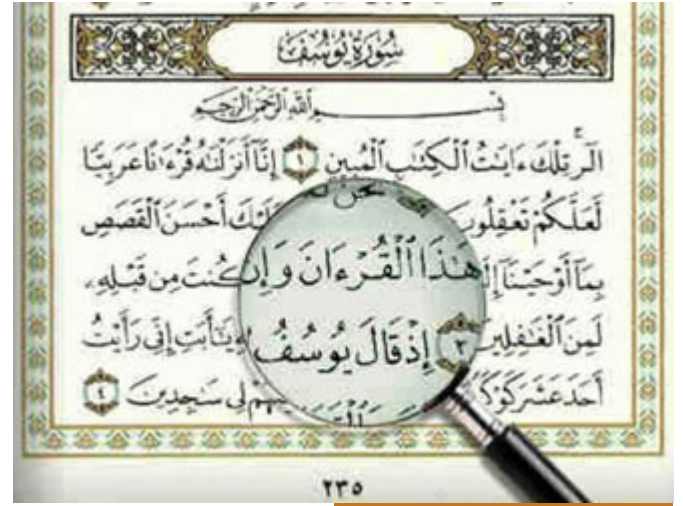 سُورَةُ يُوسُفَ
بِسْمِ ٱللَّهِ ٱلرَّحْمَٰنِ ٱلرَّحِيمِ
الٓر تِلْكَ ءَايَٰتُ ٱلْكِتَٰبِ ٱلْمُبِينِ ١ إِنَّآ أَنزَلْنَٰهُ قُرْءَٰنًا عَرَبِيًّا
لَّعَلَّكُمْ تَعْقِلُونَ نَحْنُ أَحْسَنَ ٱلْقَصَصِ
بِمَآ أَوْحَيْنَآ هَٰذَا ٱلْقُرْءَانَ وَإِن كُنتَ مِن قَبْلِهِۦ
لَمِنَ ٱلْغَٰفِلِينَ ٣ إِذْ قَالَ يُوسُفُ يَٰٓأَبَتِ إِنِّى رَأَيْتُ
أَحَدَ عَشَرَ لِى سَٰجِدِينَ ٤
٢٣٥